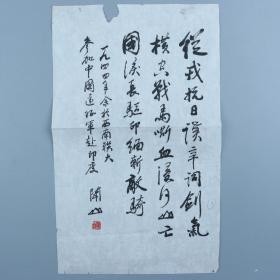 從戎抗日讀辛詞劍氣
橫空戰馬嘶血濺河山亡
國淚長驅印緬斬敵騎
一九四四年余於西南聯大
參加中國遠征軍赴印度